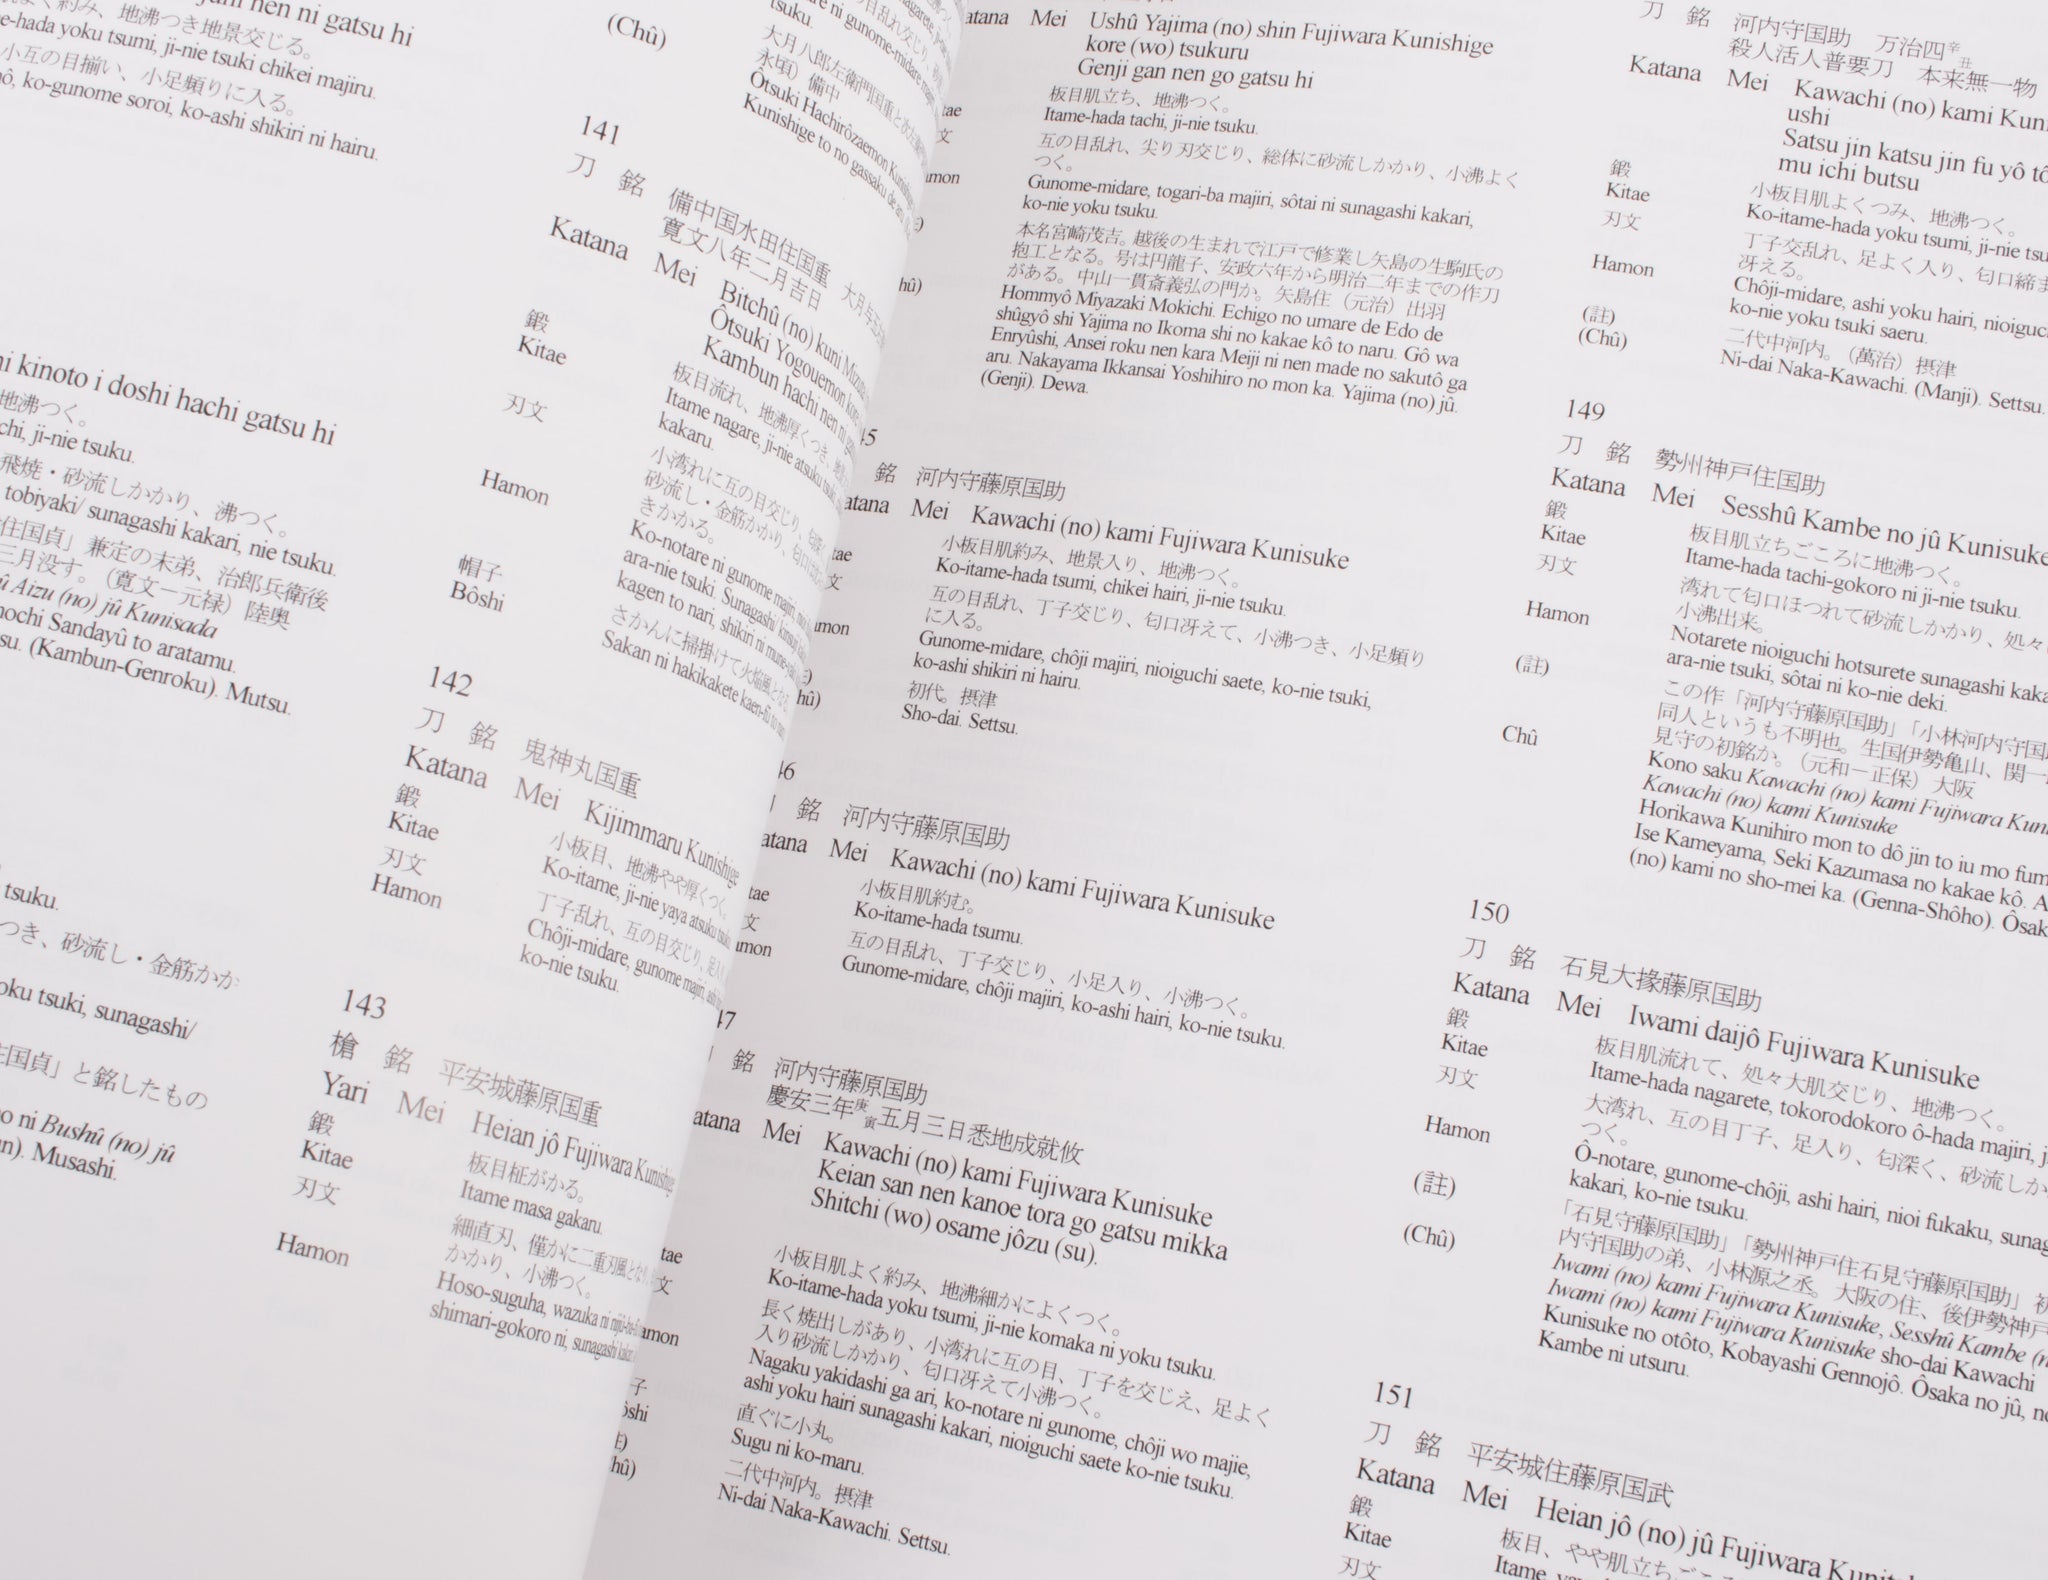 ni gatsu hi
よく約み、地沸つき地景交じる。
me-hada yoku tsumi, ji-nie tsuki chikei majiru.
小互の目揃い、小足頻りに入る。
ko-gunome soroi, ko-ashi shikiri ni hairu.
kinoto i doshi hachi gatsu hi
地沸つく。
ji-nie tsuku.
飛焼・砂流しかかり、沸つく。
tobiyaki/ sunagashi kakari, nie tsuku.
住国貞」兼定の末弟、治郎兵衛後
三月没す。（寛文－元禄）陸奥
Aizu (no) jû Kunisada
Sandayû to aratamu.
(Kambun-Genroku). Mutsu.
tsuku.
つき、砂流し・金筋かか
tsuki, sunagashi/
住国貞」と銘したもの
ni Bushû (no) jû
Musashi.
(Chû)
大月八郎左衛門国重と
永頃）備中
Ôtsuki Hachirôzaemon
Kunishige to no gassaku de
141
刀 銘 備中国水田住国重
寛文八年二月吉日
Katana Mei Bitchû (no) kuni
Ôtsuki Yogouemon
Kambun hachi nen ni
鍛 板目流れ、地沸厚くつき、
Kitae Itame nagare, ji-nie atsuku
kakaru.
刃文 小湾れに互の目交じり、
砂流し・金筋かかり、
きかかる。
Hamon Ko-notare ni gunome majiri,
ara-nie tsuki. Sunagashi/
kagen to nari, shikiri ni
帽子 さかんに掃掛けて火焔風となる
Bôshi Sakan ni hakikakete kaen-fû to
142
刀 銘 鬼神丸国重
Katana Mei Kijimmaru Kunishige
鍛 小板目、地沸やや厚くつく。
Kitae Ko-itame, ji-nie yaya atsuku
刃文 丁子乱れ、互の目交じり、
Hamon Chôji-midare, gunome majiri,
ko-nie tsuku.
143
槍 銘 平安城藤原国重
Yari Mei Heian jô Fujiwara Kunishige
鍛 板目柾がかる。
Kitae Itame masa gakaru.
刃文 細直刃、僅かに二重刃風となり
かかり、小沸つく。
Hamon Hoso-suguha, wazuka ni
shimari-gokoro ni, sunagashi
Mei Ushû Yajima (no) shin Fujiwara Kunishige
kore (wo) tsukuru
Genji gan nen go gatsu hi
板目肌立ち、地沸つく。
Itame-hada tachi, ji-nie tsuku.
互の目乱れ、尖り刃交じり、総体に砂流しかかり、小沸よく
つく。
Gunome-midare, togari-ba majiri, sôtai ni sunagashi kakari,
ko-nie yoku tsuku.
本名宮崎茂吉。越後の生まれで江戸で修業し矢島の生駒氏の
抱工となる。号は円龍子、安政六年から明治二年までの作刀
がある。中山一貫斎義弘の門か。矢島住（元治）出羽
Hommyô Miyazaki Mokichi. Echigo no umare de Edo de
shûgyô shi Yajima no Ikoma shi no kakae kô to naru. Gô wa
Enryûshi, Ansei roku nen kara Meiji ni nen made no sakutô ga
aru. Nakayama Ikkansai Yoshihiro no mon ka. Yajima (no) jû.
(Genji). Dewa.
銘 河内守藤原国助
Mei Kawachi (no) kami Fujiwara Kunisuke
小板目肌約み、地景入り、地沸つく。
Ko-itame-hada tsumi, chikei hairi, ji-nie tsuku.
互の目乱れ、丁子交じり、匂口冴えて、小沸つき、小足頻り
に入る。
Gunome-midare, chôji majiri, nioiguchi saete, ko-nie tsuki,
ko-ashi shikiri ni hairu.
初代。摂津
Sho-dai. Settsu.
銘 河内守藤原国助
Mei Kawachi (no) kami Fujiwara Kunisuke
小板目肌約む。
Ko-itame-hada tsumu.
互の目乱れ、丁子交じり、小足入り、小沸つく。
Gunome-midare, chôji majiri, ko-ashi hairi, ko-nie tsuku.
銘 河内守藤原国助
慶安三年庚寅五月三日悉地成就攸
Mei Kawachi (no) kami Fujiwara Kunisuke
Keian san nen kanoe tora go gatsu mikka
Shitchi (wo) osame jôzu (su).
小板目肌よく約み、地沸細かによくつく。
Ko-itame-hada yoku tsumi, ji-nie komaka ni yoku tsuku.
長く焼出しがあり、小湾れに互の目、丁子を交じえ、足よく
入り砂流しかかり、匂口冴えて小沸つく。
Nagaku yakidashi ga ari, ko-notare ni gunome, chôji wo majie,
ashi yoku hairi sunagashi kakari, nioiguchi saete ko-nie tsuku.
直ぐに小丸。
Sugu ni ko-maru.
二代中河内。摂津
Ni-dai Naka-Kawachi. Settsu.
刀 銘 河内守国助 万治四辛丑
殺人活人普要刀 本来無一物
Katana Mei Kawachi (no) kami
ushi
Satsu jin katsu jin fu yô
mu ichi butsu
鍛 小板目肌よくつみ、地沸つく。
Kitae Ko-itame-hada yoku tsumi, ji-nie
刃文 丁子交乱れ、足よく入り、匂口締
冴える。
Hamon Chôji-midare, ashi yoku hairi,
ko-nie yoku tsuki saeru.
(註) 二代中河内。（萬治）摂津
(Chû) Ni-dai Naka-Kawachi. (Manji). Settsu.
149
刀 銘 勢州神戸住国助
Katana Mei Sesshû Kambe no jû Kunisuke
鍛 板目肌立ちごころに地沸つく。
Kitae Itame-hada tachi-gokoro ni ji-nie tsuku.
刃文 湾れて匂口ほつれて砂流しかかり、処々
小沸出来。
Hamon Notarete nioiguchi hotsurete sunagashi
ara-nie tsuki, sôtai ni ko-nie deki.
(註) この作「河内守藤原国助」「小林河内守国助
同人というも不明也。生国伊勢亀山、関一
見守の初銘か。（元和－正保）大阪
Chû Kono saku Kawachi (no) kami Fujiwara
Kawachi (no) kami Kunisuke
Horikawa Kunihiro mon to dô jin to iu mo
Ise Kameyama, Seki Kazumasa no kakae kô.
(no) kami no sho-mei ka. (Genna-Shôho).
150
刀 銘 石見大掾藤原国助
Katana Mei Iwami daijô Fujiwara Kunisuke
鍛 板目肌流れて、処々大肌交じり、地沸つく。
Kitae Itame-hada nagarete, tokorodokoro ô-hada majiri,
刃文 大湾れ、互の目丁子、足入り、匂深く、砂流しか
つく。
Hamon Ô-notare, gunome-chôji, ashi hairi, nioi fukaku,
kakari, ko-nie tsuku.
(註) 「石見守藤原国助」「勢州神戸住石見守藤原国助」初
内守国助の弟、小林源之丞。大阪の住、後伊勢神戸
(Chû) Iwami (no) kami Fujiwara Kunisuke, Sesshû Kambe
Iwami (no) kami Fujiwara Kunisuke sho-dai Kawachi
Kunisuke no otôto, Kobayashi Gennojô. Ôsaka no jû,
Kambe ni utsuru.
151
刀 銘 平安城住藤原国武
Katana Mei Heian jô (no) jû Fujiwara
鍛 板目、やや肌立ち
Kitae Itame,
刃文